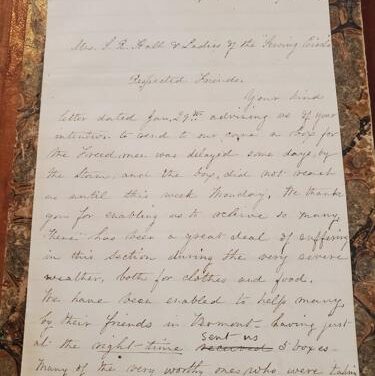 Mrs. S. E. Hall & Ladies of the Sewing Circle
Respected Friends
Your kind
letter dated Jan. 29th advising us of your
intention to send to our care a box for
the Freedmen was delayed some days by
the storm, and the box did not reach
us until this week Monday. We thank
you for enabling us to relieve so many.
There has been a great deal of suffering
in this section during the very severe
weather, both for clothes and food.
We have been enabled to help many
by their friends in Vermont having just
at the right time sent us received 3 boxes.
Many of the very worthy ones who were